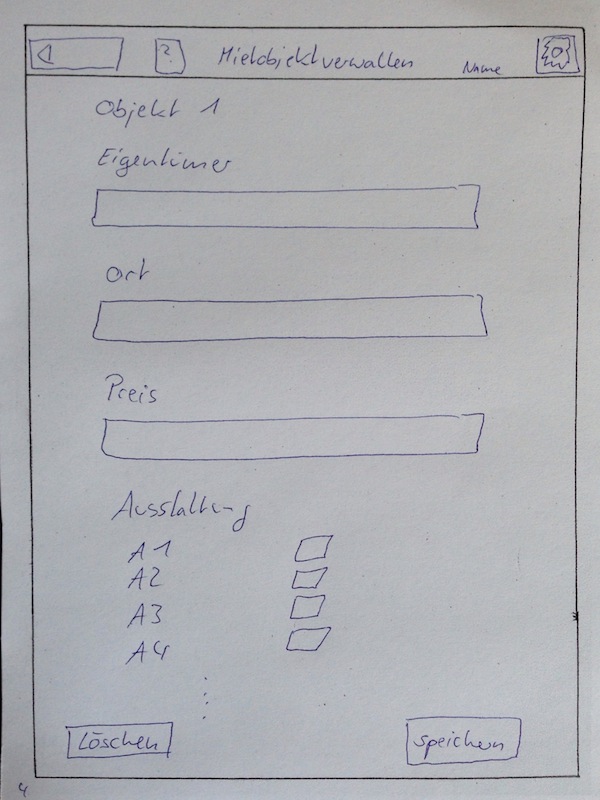 ? Mietobjektverwalten Name
Objekt 1
Eigentümer
Ort
Preis
Ausstattung
A1
A2
A3
A4
Löschen speichern
4